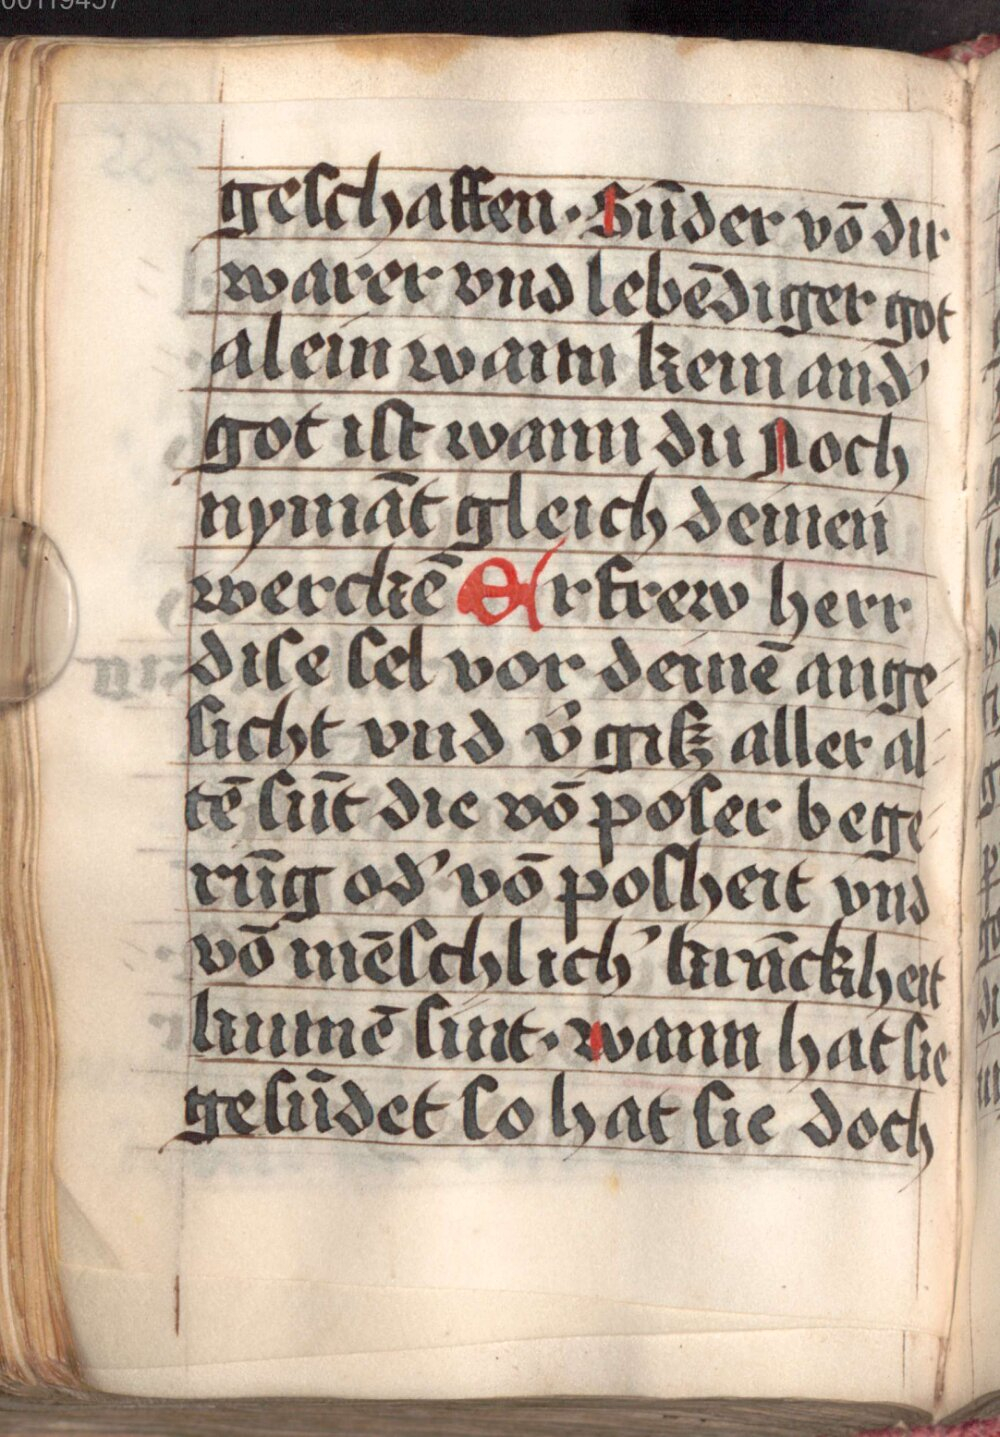 geschaffen · Sūder vō dir
warer vnd lebēdiger got
alein wann kein and'
got ist wann du Noch
nymāt gleich deinen
werckē Erfrew herr
dise sel vor deinē ange
sicht vnd v'gisz aller al
tē sūt die vō poser bege
rūg od' vō posheit vnd
vō mēschlich' krāckheit
kumē sint · wann hat sie
gesūdet so hat sie doch